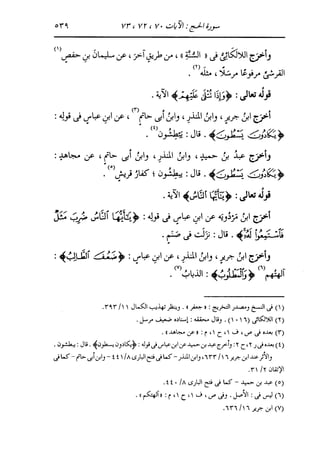 سورة الحج : الآيات ٧٠، ٧٢، ٧٣
٥٣٩
وأخرَج اللالَكائىُّ فى « السُّنَّةِ » ، من طريقٍ آخرَ ، عن سليمانَ بنِ حفصٍ(١)
القرشىِّ مرفوعًا مرسَلًا ، مثلَه(٢) .
قولُه تعالى : ﴿وَإِذَا تُتْلَىٰ عَلَيْهِمْ﴾ الآية .
أخرَج ابنُ جريرٍ ، وابنُ المنذرِ ، وابنُ أبى حاتمٍ(٣) ، عن ابنِ عباسٍ فى قولِه :
﴿يَكَادُونَ يَسْطُونَ﴾ . قال : يَبطِشُون(٤) .
وأخرَج عبدُ بنُ حميدٍ ، وابنُ المنذرِ ، وابنُ أبى حاتمٍ ، عن مجاهدٍ :
﴿يَكَادُونَ يَسْطُونَ﴾ . قال : يَبطِشون ؛ كفارُ قريشٍ(٥) .
قولُه تعالى : ﴿يَٰٓأَيُّهَا ٱلنَّاسُ﴾ الآية .
أخرَج ابنُ مَرْدُويَه عن ابنِ عباسٍ فى قولِه : ﴿يَٰٓأَيُّهَا ٱلنَّاسُ ضُرِبَ مَثَلٌ
فَٱسْتَمِعُوا۟ لَهُۥٓ﴾ . قال : نزَلت فى صنمٍ .
وأخرَج ابنُ جريرٍ ، وابنُ المنذرِ ، عن ابنِ عباسٍ : ﴿ضَعُفَ ٱلطَّالِبُ﴾ :
آلهتُهم(٦) ﴿وَٱلْمَطْلُوبُ﴾ : الذبابُ(٧) .
(١) فى النسخ ومصدر التخريج : « جعفر » . وينظر تهذيب الكمال ١١/ ٣٩٣.
(٢) اللالكائى (١٠١٦) . وقال محققه : إسناده ضعيف مرسل .
(٣) بعده فى ص ، ف ١، ح ١، م : « عن مجاهد » .
(٤) بعده فى ر ٢، ح ٢: « وأخرج عبد بن حميد عن ابن عباس فى قوله : ﴿يكادون يسطون﴾ . قال : يبطشون .
والأثر عند ابن جرير ١٦/ ٦٣٣، وابن المنذر – كما فى فتح البارى ٨/ ٤٤١ – وابن أبى حاتم – كما فى
الإتقان ٢/ ٣١.
(٥) عبد بن حميد – كما فى فتح البارى ٨/ ٤٤٠.
(٦) ليس فى : الأصل . وفى ص ، ف ١، ح ١، م : « آلهتكم » .
(٧) ابن جرير ١٦/ ٦٣٦.